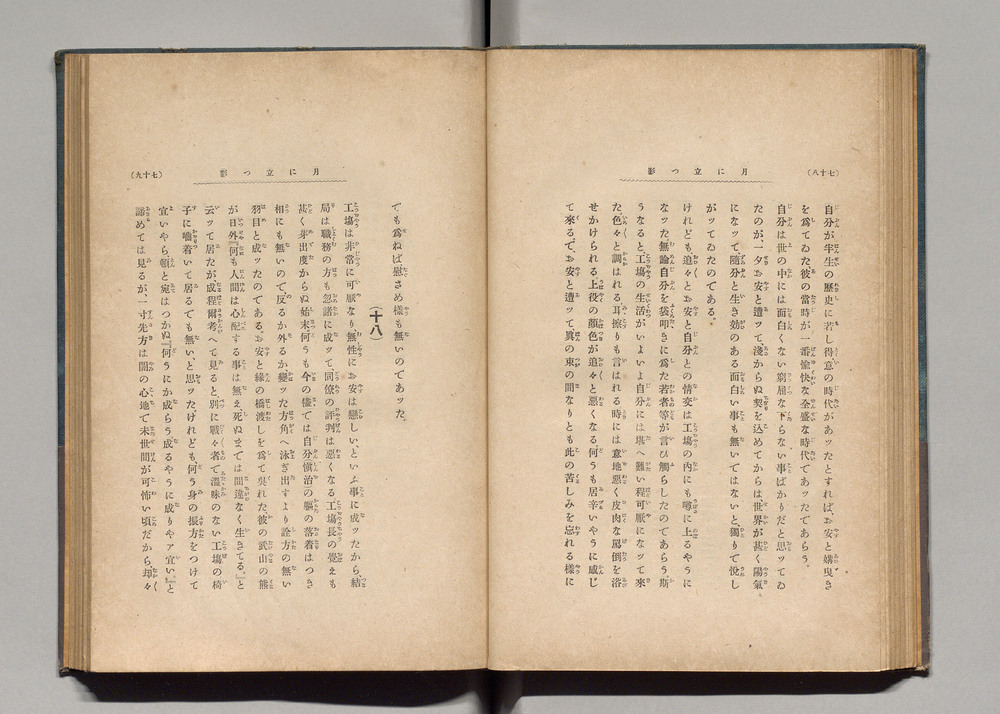 (七十八)
月に立つ影
自分が半生の歴史に若し得意の時代があッたとすれば、お安と媾曳き
を爲てゐた彼の當時が一番愉快な全盛な時代であッたであらう。
自分は世の中には面白くない窮屈な下らない事ばかりだと思ッてゐ
たのが一夕お安と遭ッて淺からぬ契を込めてからは世界が甚く陽氣
になッて隨分と生き効のある面白い事も無いではないと、獨りで悅し
がッてゐたのである。
けれども追々とお安と自分との情交は工塲の內にも噂に上るやうに
なッた無論自分を袋叩きに爲た若者等が言ひ觸らしたのであらう斯
うなると工塲の生活がいよいよ自分には堪へ難い程可厭になッて來
た色々と調はれる耳擦りも言はれる時には意地惡く皮肉な罵倒を浴
せかけられる上役の顏色が追々と惡くなる何うも居辛いやうに感じ
て來るで、お安と遭ッて眞の束の間なりとも此の苦しみを忘れる樣に
(七十九)
月に立つ影
でも爲ねば慰さめ樣も無いのであッた。
(十八)
工塲は非常に可厭なり無性にお安は戀しい、といふ事に成ッたから、結
局は職務の方も忽諸に成ッて同僚の評判は惡くなる工塲長の覺えも
甚く芽出度からぬ始末何うも今の儘では自分愼治の軀の落着はつき
相にも無いので、反るか外るか變ッた方角へ泳ぎ出すより詮方の無い
羽目と成ッたのである。お安と緣の橋渡しを爲て吳れた彼の武山の熊
が日外『何も人間は心配する事は無え死ぬまでは間違なく生きてる。』と
云ッて居たが成程爾考へて見ると別に戰々者で溫味のない工塲の椅
子に嚙着いて居るでも無い、と思ッたけれども何う身の振方をつけて
宜いやら頓と宛はつかぬ『何うにか成らう成るやうに成りやア宜い』と
諦めては見るが、一寸先方は闇の心地で未世間が可怖い頃だから、却々